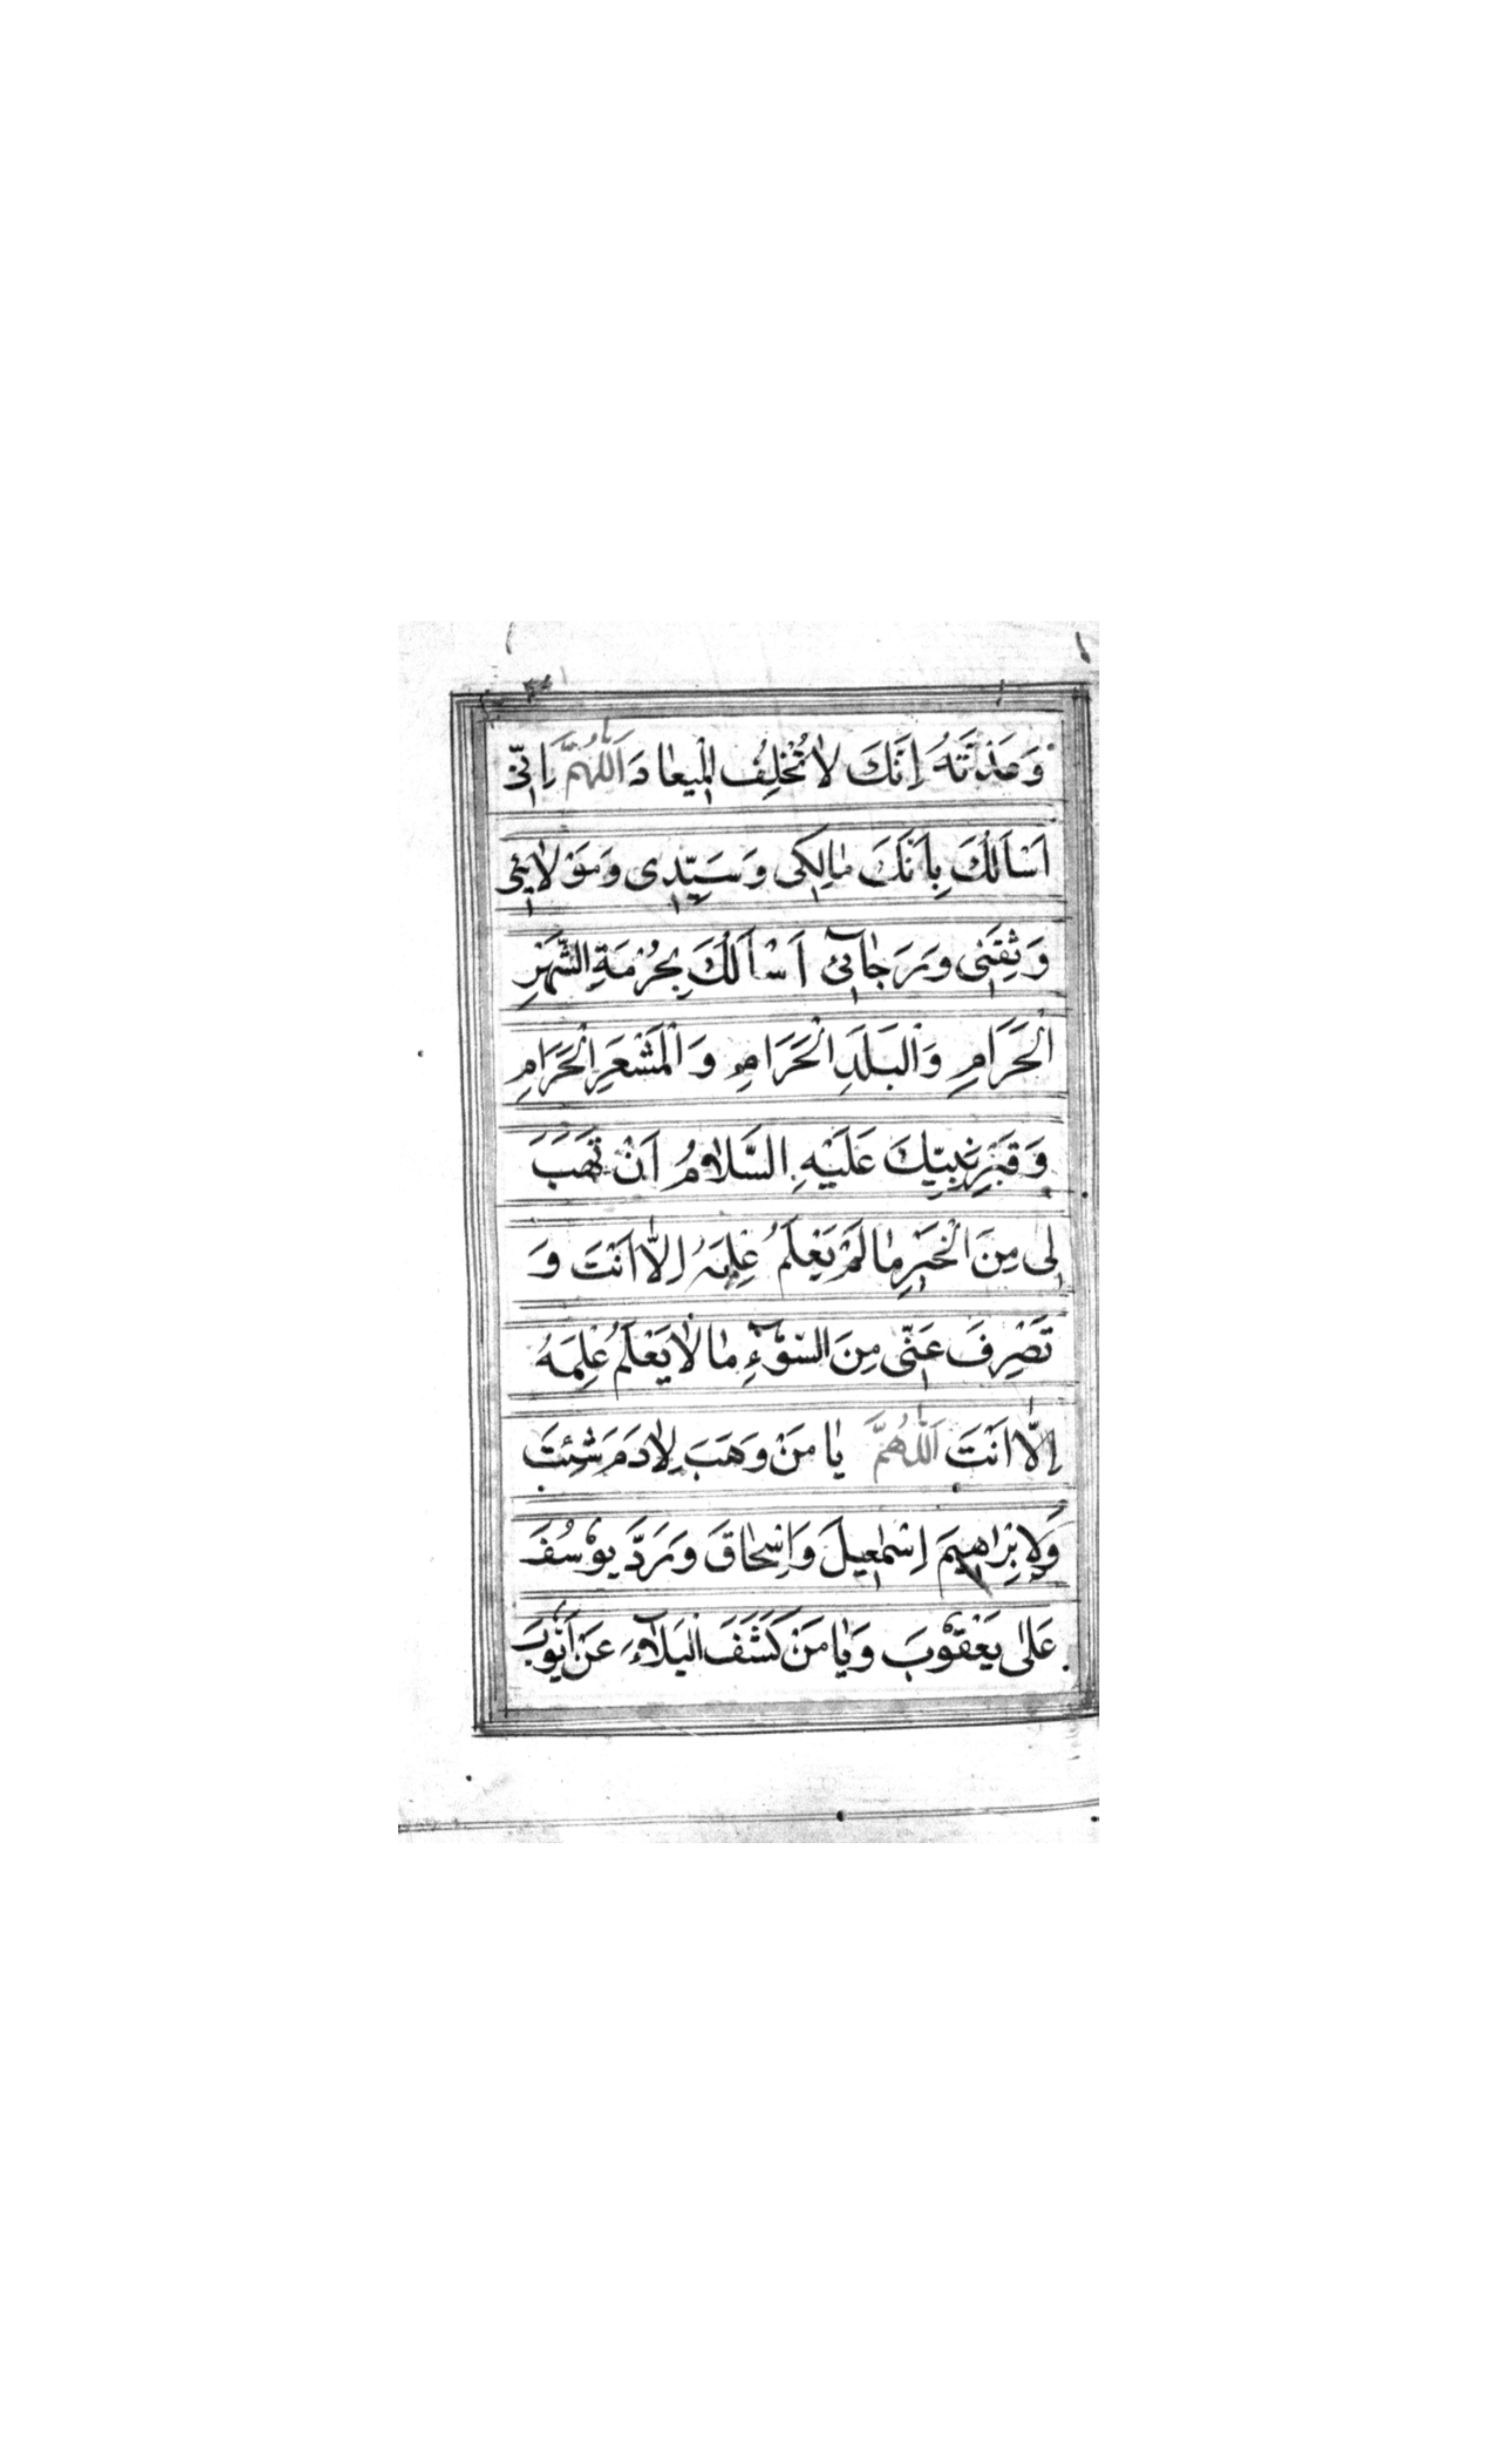 وَعَدْتَهُ اِنَّكَ لَا تُخْلِفُ الْمِيعَادَ اَللّٰهُمَّ اِنِّی
اَسْاَلُكَ بِاَنَّكَ مَالِكِی وَسَيِّدِی وَمَوْلَائِی
وَثِقَتِی وَرَجَائِی اَسْاَلُكَ بِحُرْمَةِ الشَّهْرِ
الْحَرَامِ وَالْبَلَدِ الْحَرَامِ وَالْمَشْعَرِ الْحَرَامِ
وَقَبْرِ نَبِيِّكَ عَلَيْهِ السَّلَامُ اَنْ تَهَبَ
لِی مِنَ الْخَيْرِ مَا لَمْ يَعْلَمُ عِلْمَهُ اِلَّا اَنْتَ وَ
تَصْرِفَ عَنِّی مِنَ السُّوْٓءِ مَا لَا يَعْلَمُ عِلْمَهُ
اِلَّا اَنْتَ اَللّٰهُمَّ يَا مَنْ وَهَبَ لِاٰدَمَ شِئْتَ
وَلِاِبْرَاهِيمَ اِسْمٰعِيلَ وَاِسْحَاقَ وَرَدَّ يُوْسُفَ
عَلٰى يَعْقُوْبَ وَيَا مَنْ كَشَفَ الْبَلَآءَ عَنْ اَيُّوْبَ